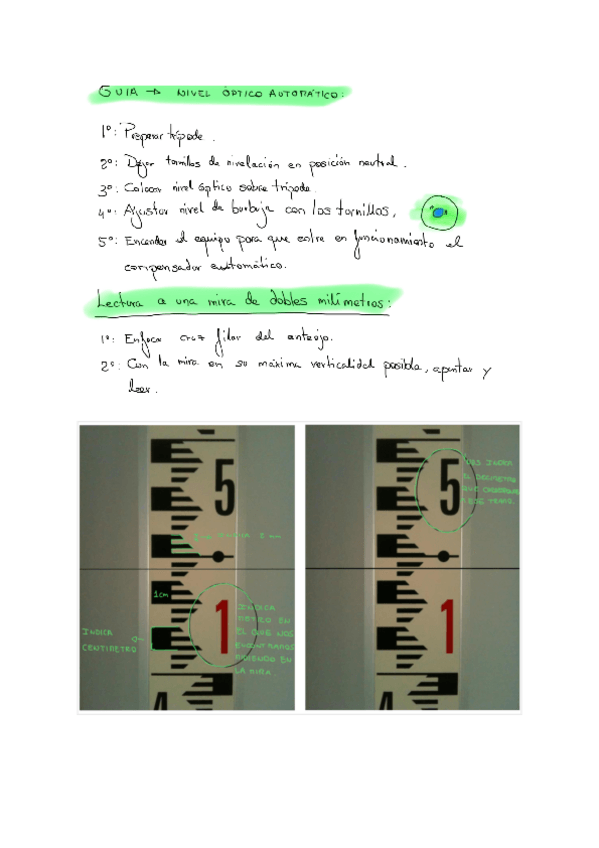 GUIA → NIVEL ÓPTICO AUTOMÁTICO:
1º: Preparar trípode.
2º: Dejar tornillos de nivelación en posición neutral.
3º: Colocar nivel óptico sobre trípode.
4º: Ajustar nivel de burbuja con los tornillos.
5º: Encender el equipo para que entre en funcionamiento el
compensador automático.
Lectura a una mira de dobles milímetros:
1º: Enfocar cruz filar del anteojo.
2º: Con la mira en su máxima verticalidad posible, apuntar y
leer.
5
INDICA 2 mm
1cm
INDICA
CENTIMETRO
1
INDICA
METRO EN
EL QUE NOS
ENCONTRAMOS
MIDIENDO EN
LA MIRA.
4
5
NOS INDICA
EL DECIMETRO
QUE
ESE TRAMO.
1
4